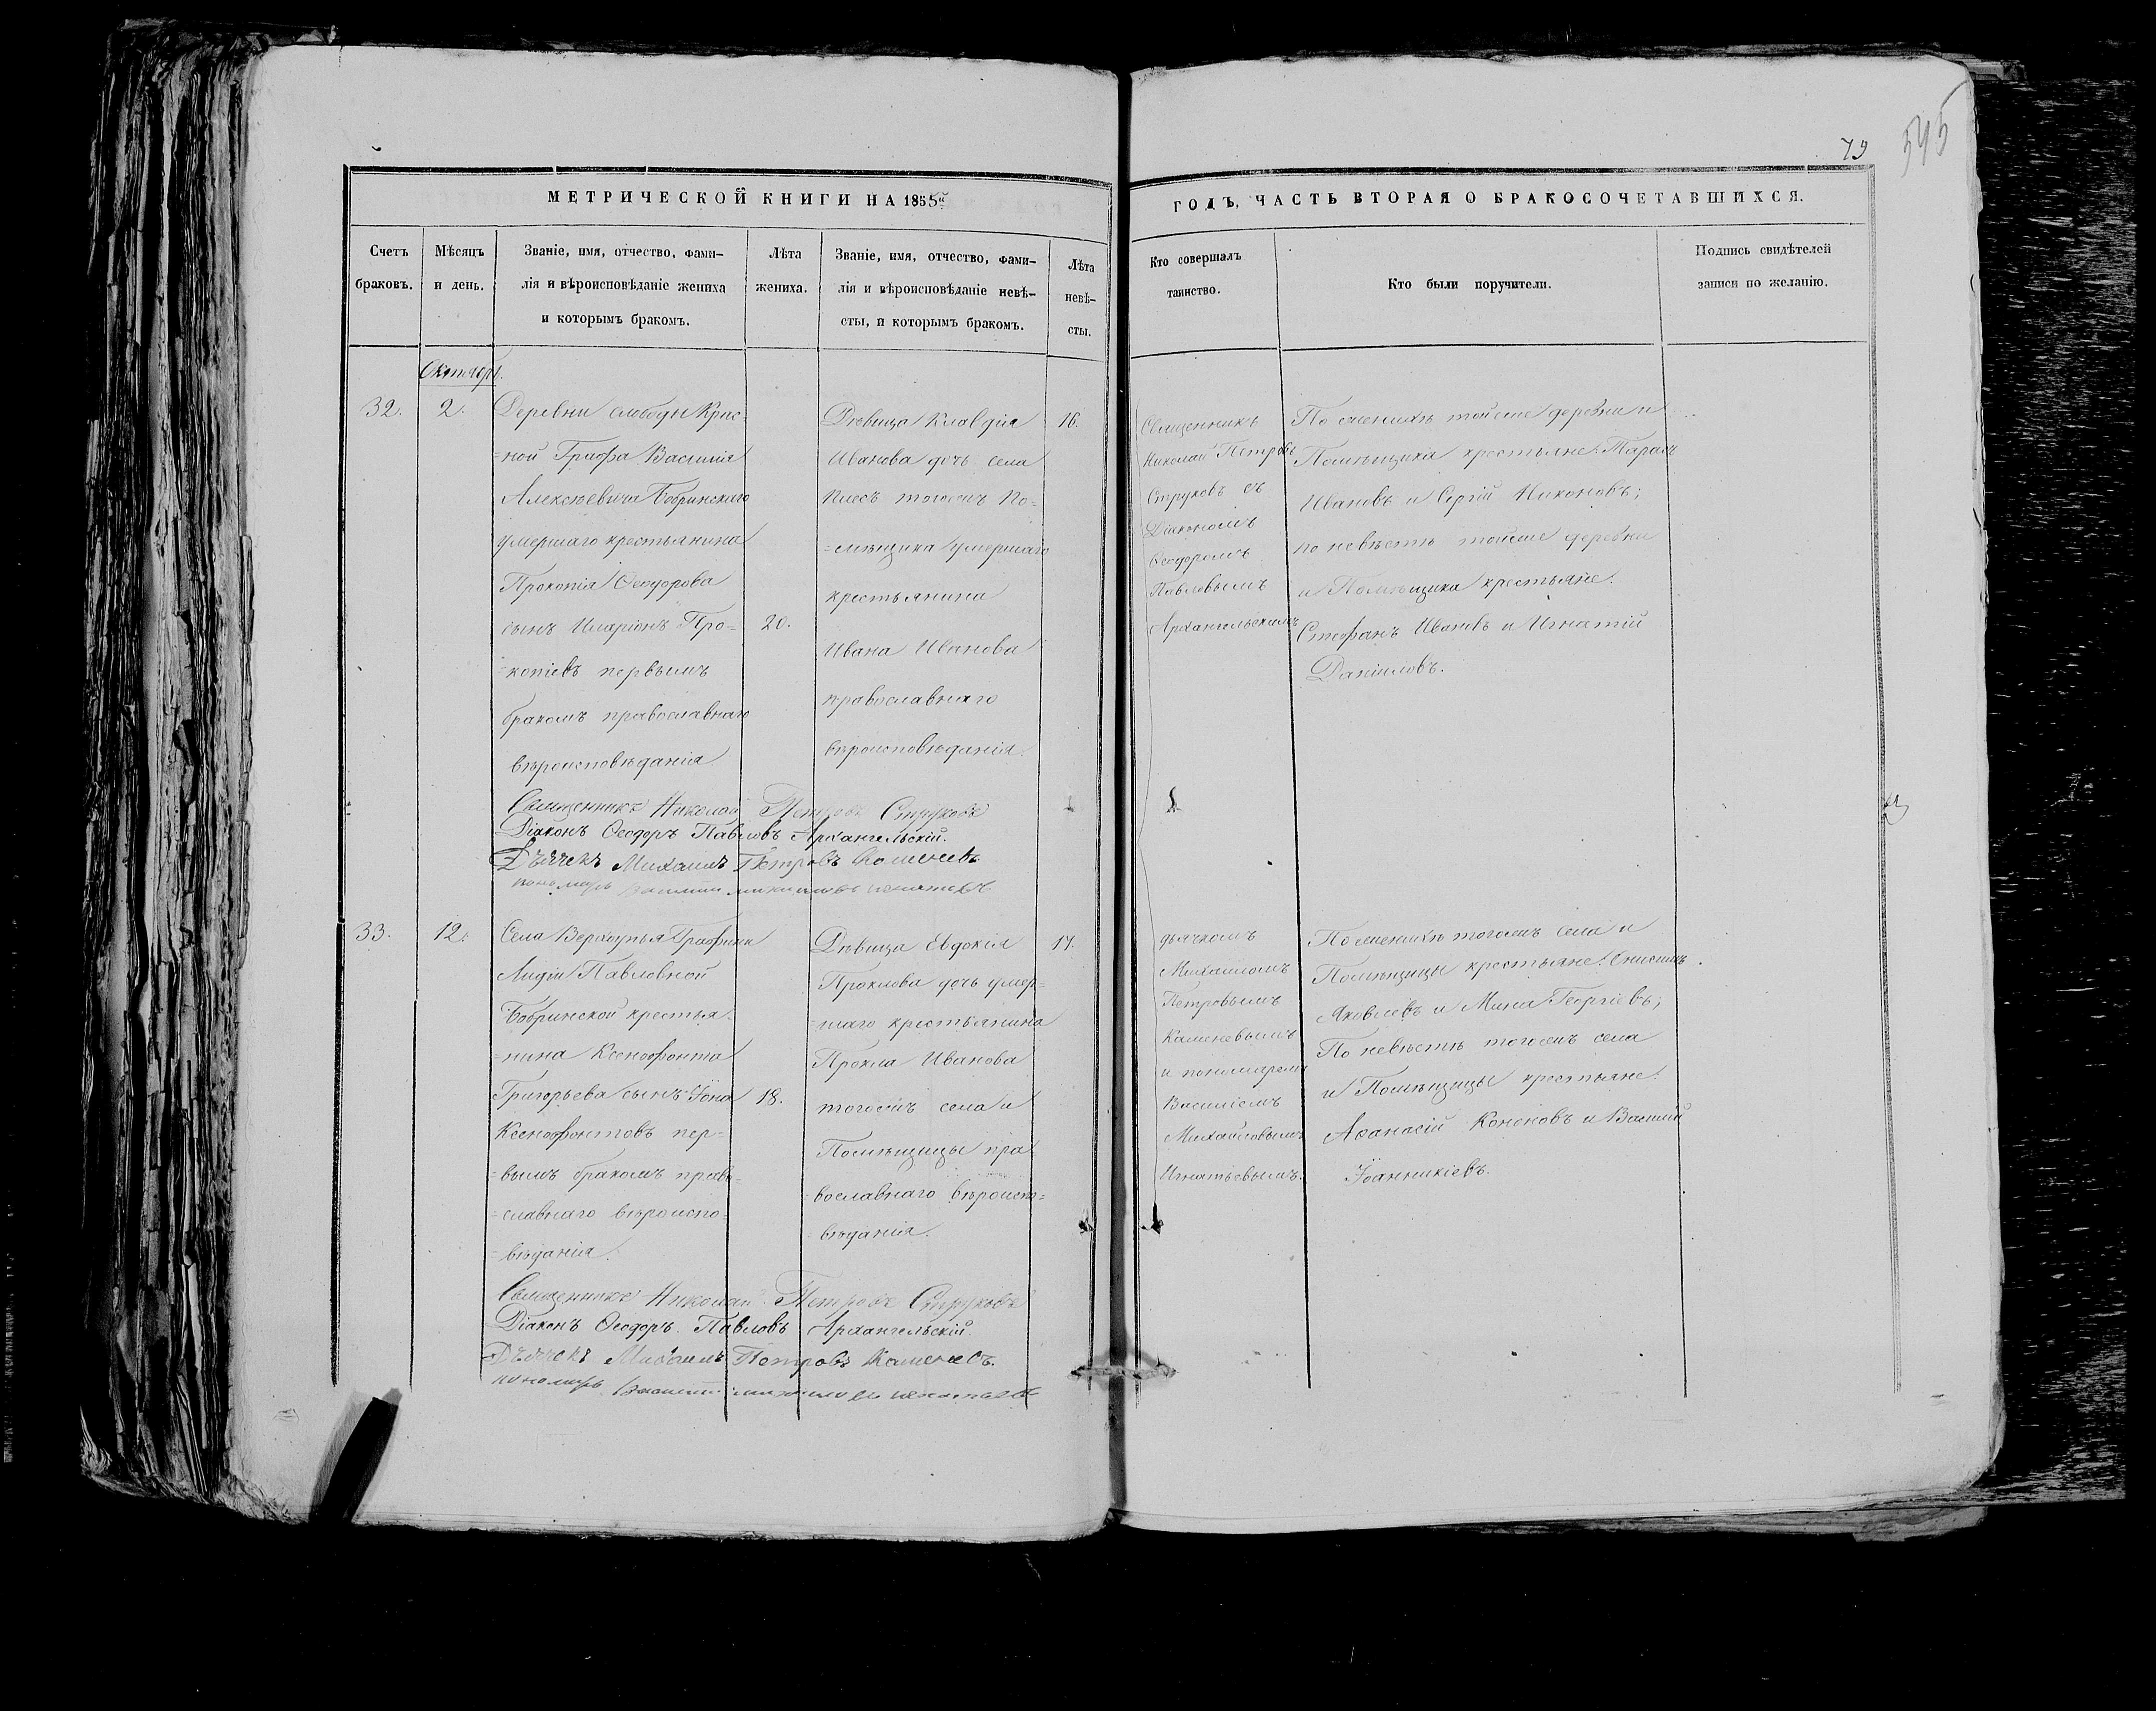 79
595
МЕТРИЧЕСКОЙ КНИГИ НА 1855й
ГОДЪ, ЧАСТЬ ВТОРАЯ О БРАКОСОЧЕТАВШИХСЯ.
Счетъ
браковъ.
Мѣсяцъ
и день.
Званіе, имя, отчество, фами-
лія и вѣроисповѣданіе жениха
и которымъ бракомъ.
Лѣта
жениха.
Званіе, имя, отчество, фами-
лія и вѣроисповѣданіе невѣ-
сты, и которымъ бракомъ.
Лѣта
невѣ-
сты.
Кто совершалъ
таинство.
Кто были поручители.
Подпись свидѣтелей
записи по желанію.
Октябрь.
32.
2.
Деревни слободы Крас-
=ной Графа Василія
Алексѣевича Бобринскаго
умершаго крестьянина
Прокопія Ѳеодорова
сынъ Иларіонъ Про-
=копіевъ первымъ
бракомъ православнаго
вѣроисповѣданія.
20.
Дѣвица Клавдія
Иванова дочь села
тогожъ По-
=мѣщика умершаго
крестьянина
Ивана Иванова
православнаго
вѣроисповѣданія.
16.
Священникъ
Николай Петровъ
Струковъ съ
Діакономъ
Ѳеодоромъ
Павловымъ
Архангельскимъ
По женихѣ тойже деревни и
Помѣщика крестьяне: Тарасъ
Ивановъ и Сергій Никоновъ;
по невѣстѣ тойже деревни
и Помѣщика крестьяне:
Стефанъ Ивановъ и Игнатій
Даниловъ.
Священникъ Николай Петровъ Струковъ
Діаконъ Ѳеодоръ Павловъ Архангельскій.
Дьячекъ Михаилъ Петровъ Каменевъ
пономарь Василій Михаиловъ Игнатьевъ
33.
12.
Села Верхоупья Графини
Лидіи Павловной
Бобринской крестья-
=нина Ксенофонта
Григорьева сынъ Іона
Ксенофонтовъ пер-
=вымъ бракомъ право-
=славнаго вѣроиспо-
=вѣданія.
18.
Дѣвица Евдокія
Проклова дочь умер-
=шаго крестьянина
Прокла Иванова
тогожъ села и
Помѣщицы пра
вославнаго вѣроиспо-
вѣданія.
17.
дьячкомъ
Михаиломъ
Петровымъ
Каменевымъ
и пономаремъ
Василіемъ
Михайловымъ
Игнатьевымъ.
По женихѣ тогожъ села и
Помѣщицы крестьяне: Онисимъ
Яковлевъ и Мина Георгіевъ;
По невѣстѣ тогожъ села
и Помѣщицы крестьяне:
Аѳанасій Кононовъ и Василій
Іоанникіевъ.
Священникъ Николай Петровъ Струковъ
Діаконъ Ѳеодоръ Павловъ Архангельскій.
Дьячекъ Михаилъ Петровъ Каменевъ.
пономарь Василій Михаиловъ Игнатьевъ